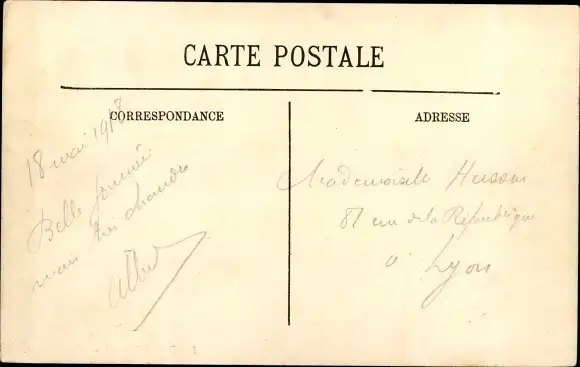 CARTE POSTALE
CORRESPONDANCE
18 mai 1918
Belle journée
mais très chaude
Albert
ADRESSE
Mademoiselle
81 rue de la République
à Lyon